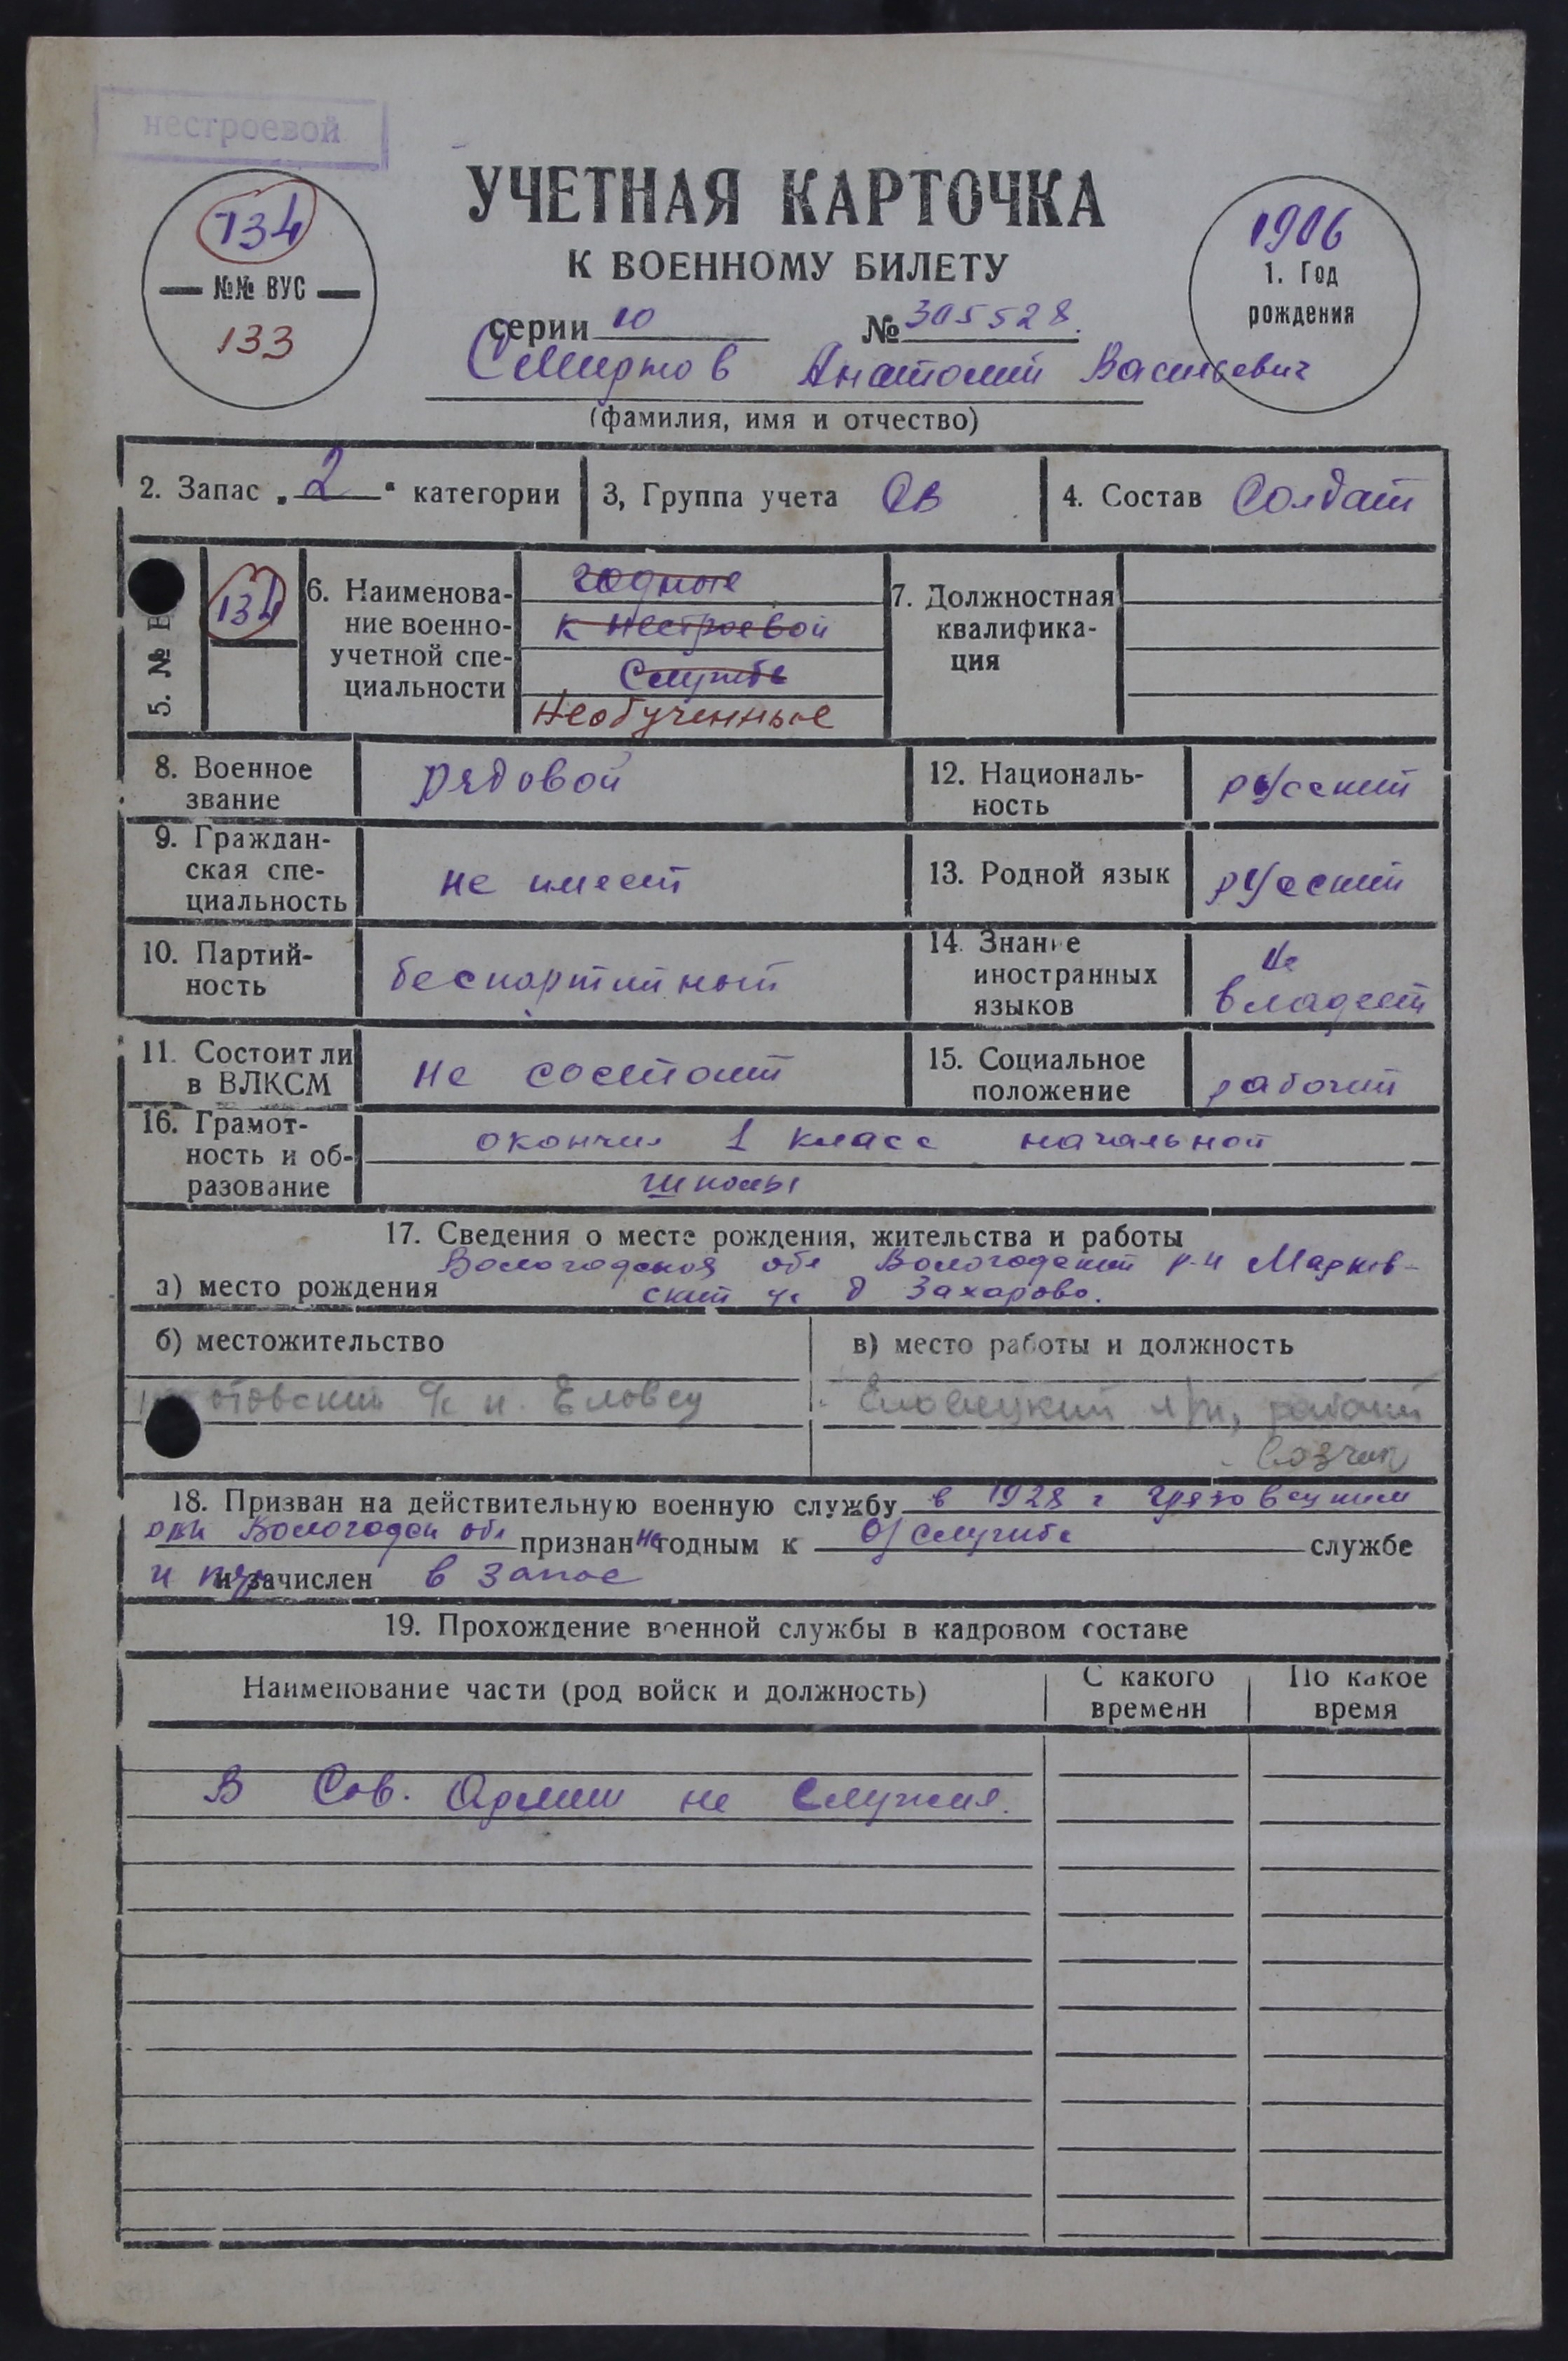 нестроевой
УЧЕТНАЯ КАРТОЧКА
К ВОЕННОМУ БИЛЕТУ
серии 10 № 305528.
Анатолий Васильевич
(фамилия, имя и отчество)
134
№№ ВУС
133
1906
1. Год
рождения
2. Запас „2“ категории
3, Группа учета ОВ
4. Состав Солдат
5. № В
134
6. Наименова-
ние военно-
учетной спе-
циальности
годные
к нестроевой
службе
Необученные
7. Должностная
квалифика-
ция
8. Военное
звание
рядовой
12. Националь-
ность
русский
9. Граждан-
ская спе-
циальность
не имеет
13. Родной язык
русский
10. Партий-
ность
беспартийный
14. Знание
иностранных
языков
не
владеет
11. Состоит ли
в ВЛКСМ
не состоит
15. Социальное
положение
рабочий
16. Грамот-
ность и об-
разование
окончил 1 класс начальной
школы
17. Сведения о месте рождения, жительства и работы
Вологодская обл Вологодский р-н Марков-
а) место рождения ский с/с д Захарово.
б) местожительство
отовский с/с п. Еловец
в) место работы и должность
Еловецкий л/п, рабочий
возчик
18. Призван на действительную военную службу в 1928 г Грязовецким
Вологодск обл признан не годным к службе службе
и зачислен в запас
19. Прохождение военной службы в кадровом составе
Наименование части (род войск и должность)
С какого
времени
По какое
время
В Сов. Армии не служил.